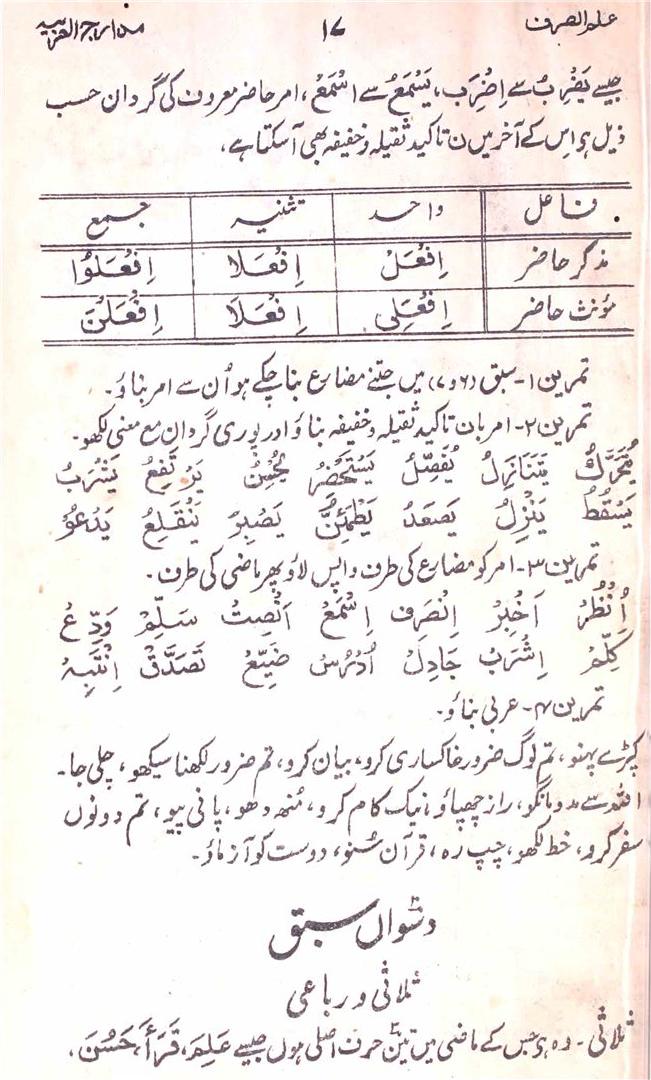 علم الصرف ۱۷ مدارج العربیہ
جیسے یَضْرِبُ سے اِضْرِب، یَسْمَعُ سے اسْمَعْ، امر حاضر معروف کی گردان حسب
ذیل ہو اس کے آخر میں ن تاکید ثقیلہ و خفیفہ بھی آسکتا ہے،
فاعل واحد تثنیہ جمع
مذکر حاضر اِفْعَلْ اِفْعَلَا اِفْعَلُوْا
مؤنث حاضر اِفْعَلِی اِفْعَلَا اِفْعَلْنَ
تمرین ۱- سبق (۶و۷) میں جتنے مضارع بنا چکے ہو اُن سے امر بناؤ۔
تمرین ۲- امر بان تاکید ثقیلہ و خفیفہ بناؤ اور پوری گردان مع معنی لکھو۔
یُحَرِّكُ یَتَنَازَلُ یُفَصِّلُ یَسْتَحْضِرُ یُحْسِنُ یَرْتَفِعُ یَشْرَبُ
یَسْقُطُ یَنْزِلُ یَصْعَدُ یَطْمَئِنُّ یَصْبِرُ یَنْقَلِعُ یَدْعُوْ
تمرین ۳- امر کو مضارع کی طرف واپس لاؤ پھر ماضی کی طرف۔
اُنْظُرْ اَخْبِرْ اِنْصَرِف اِسْمَعْ اَنْصِتْ سَلِّمْ وَدِّعْ
کَلِّمْ اِشْرَبْ جَادِلْ اُدْرُسْ ضَیِّعْ تَصَدَّقْ اِنْتَبِهْ
تمرین ۴- عربی بناؤ۔
کپڑے پہنو، تم لوگ ضرور خاکساری کرو، بیان کرو، تم ضرور لکھنا سیکھو، چلی جا۔
اللہ سے مدد مانگو، راز چھپاؤ، نیک کام کرو، مُنھ دھو، پانی پیو، تم دونوں
سفر کرو، خط لکھو، چپ رہ، قرآن سُنو، دوست کو آزماؤ۔
دسواں سبق
ثلاثی و رباعی
ثلاثی - وہ ہو جس کے ماضی میں تین حرف اصلی ہوں جیسے عَلِمَ، قَرَأَ، حَسُنَ،